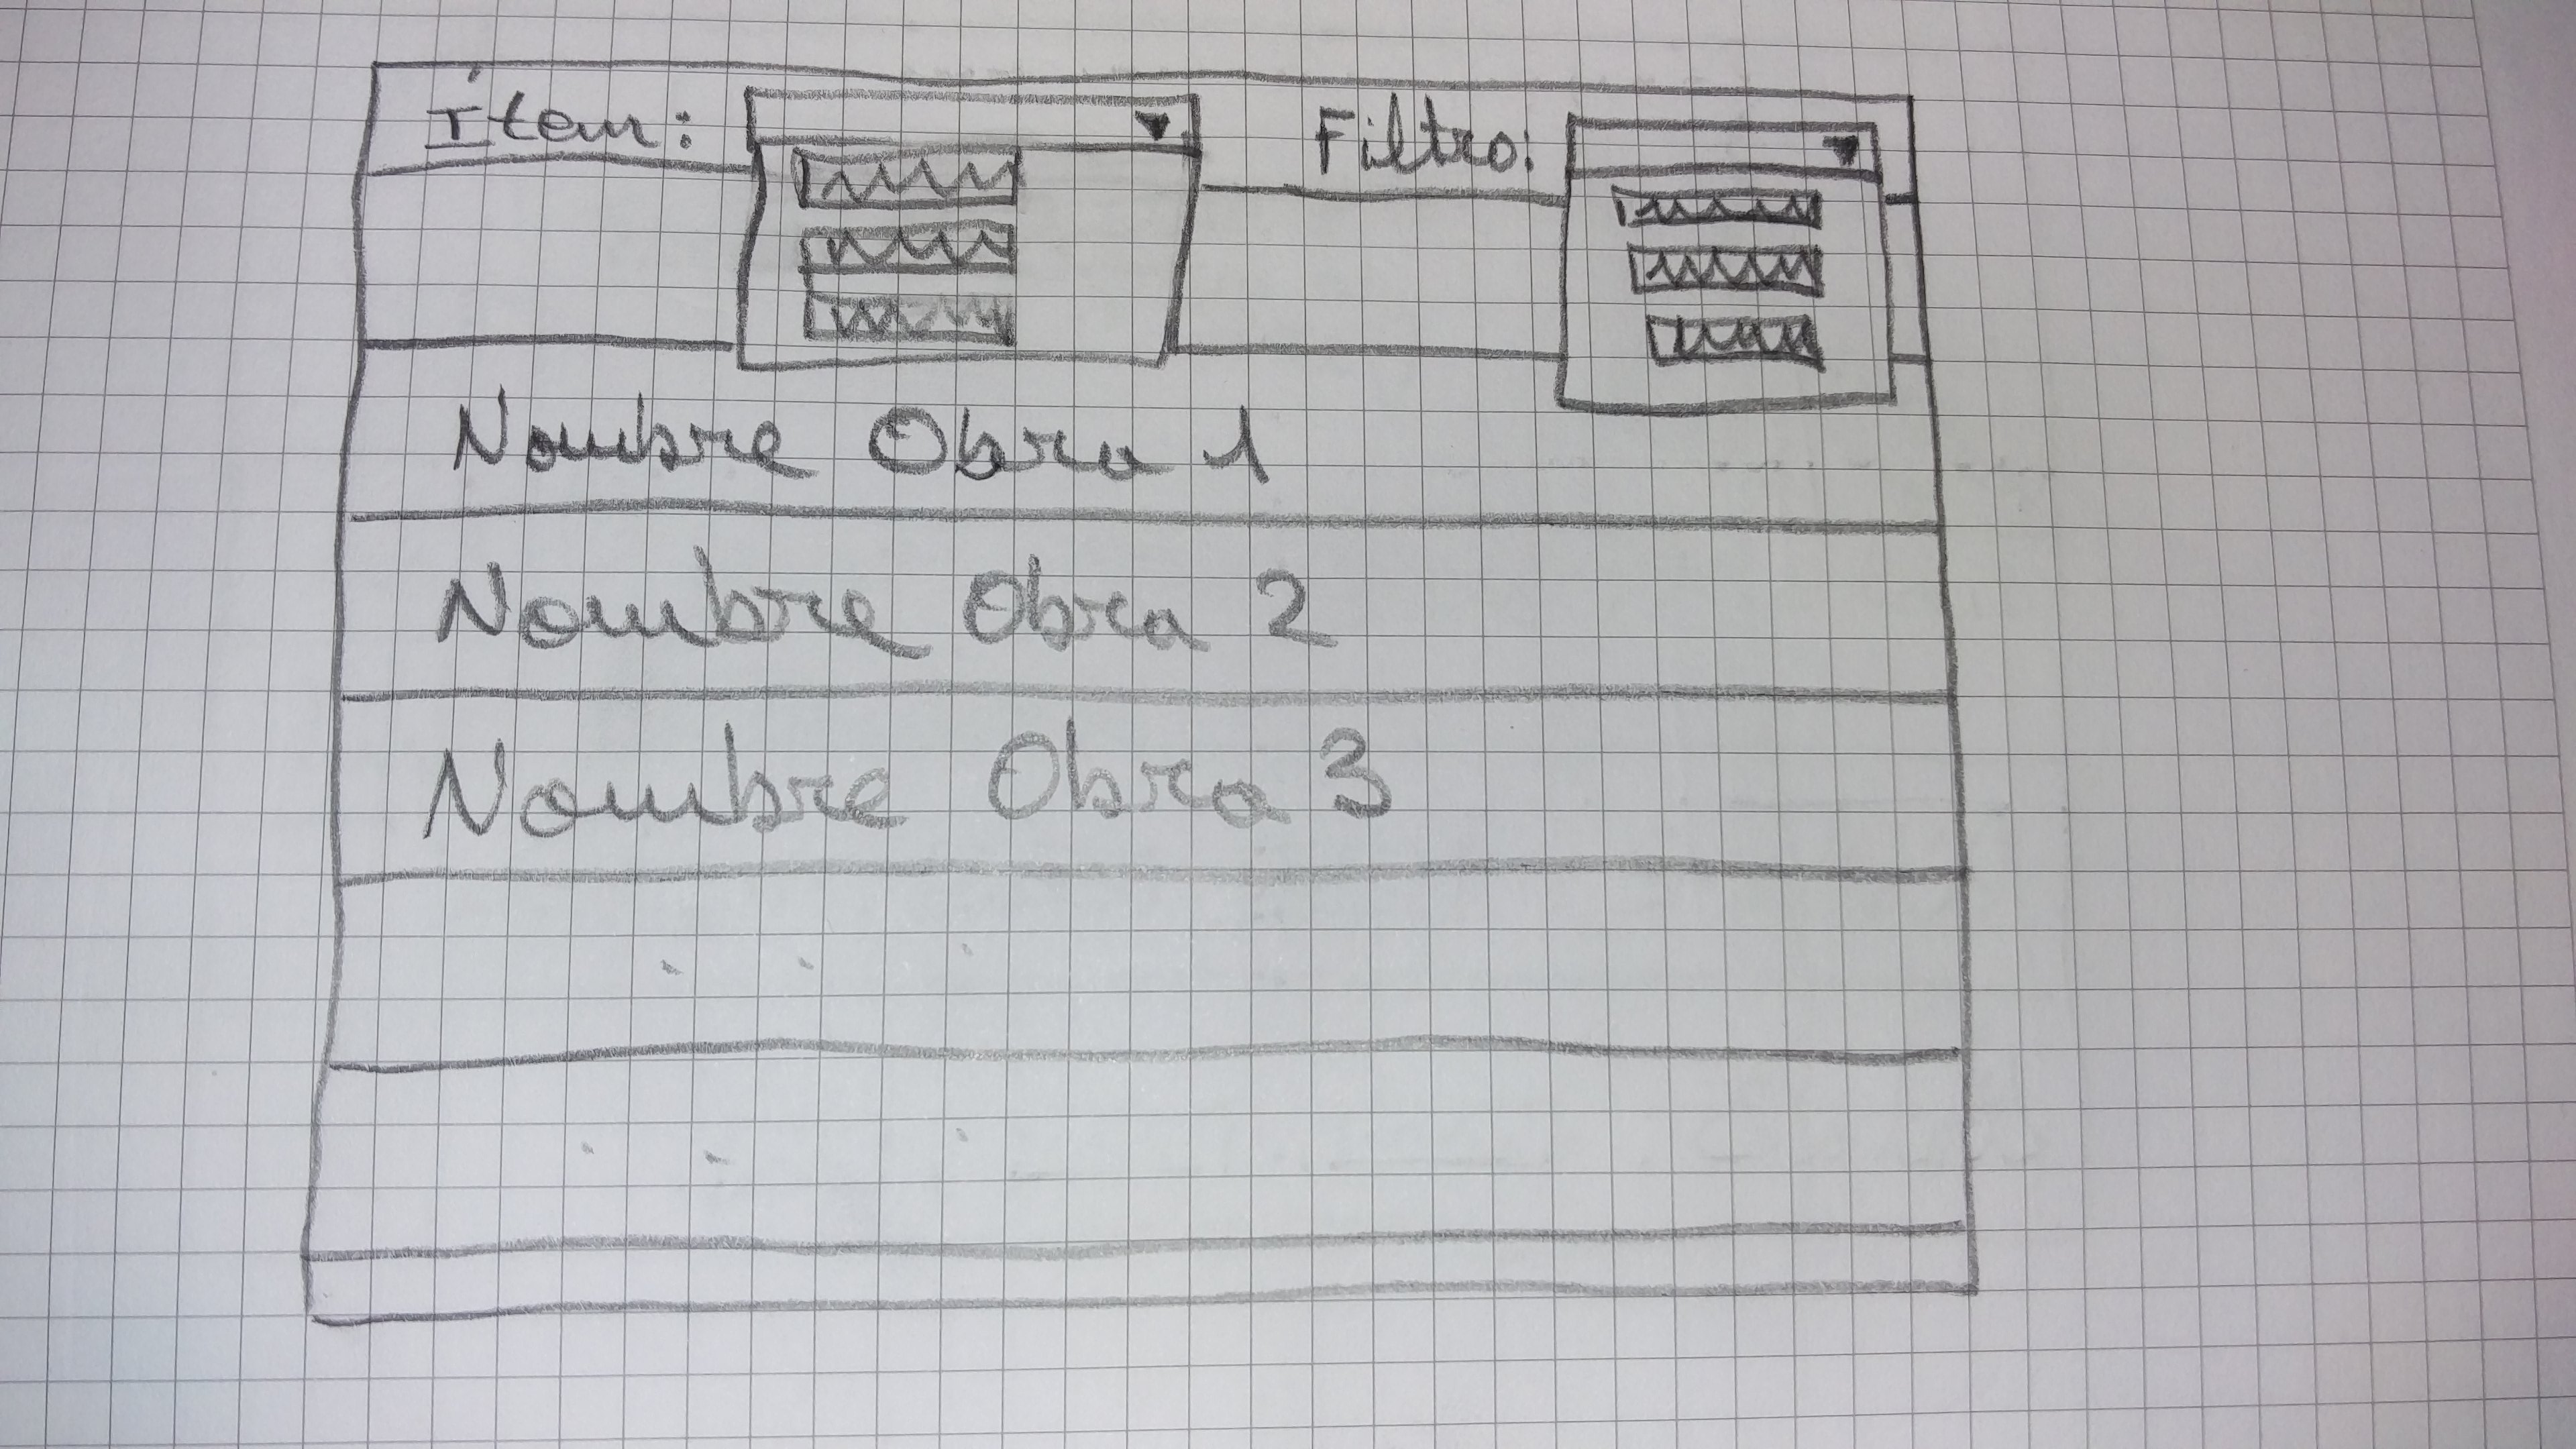 Ítem: Filtro:
Nombre Obra 1
Nombre Obra 2
Nombre Obra 3